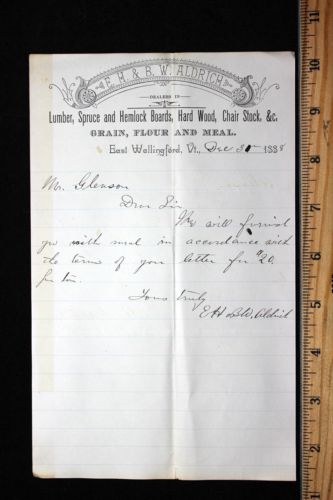 E. H. & B. W. ALDRICH
DEALERS IN
Lumber, Spruce and Hemlock Boards, Hard Wood, Chair Stock, &c.
GRAIN, FLOUR AND MEAL.
East Wallingford, Vt., Dec 31 1888
Mr. Gleason
Dear Sir
We will furnish
you with meal in accordance with
the terms of your letter for $20.
per ton.
Yours truly
E H & B W. Aldrich
11
10
9
8
7
6
5
4
3
2